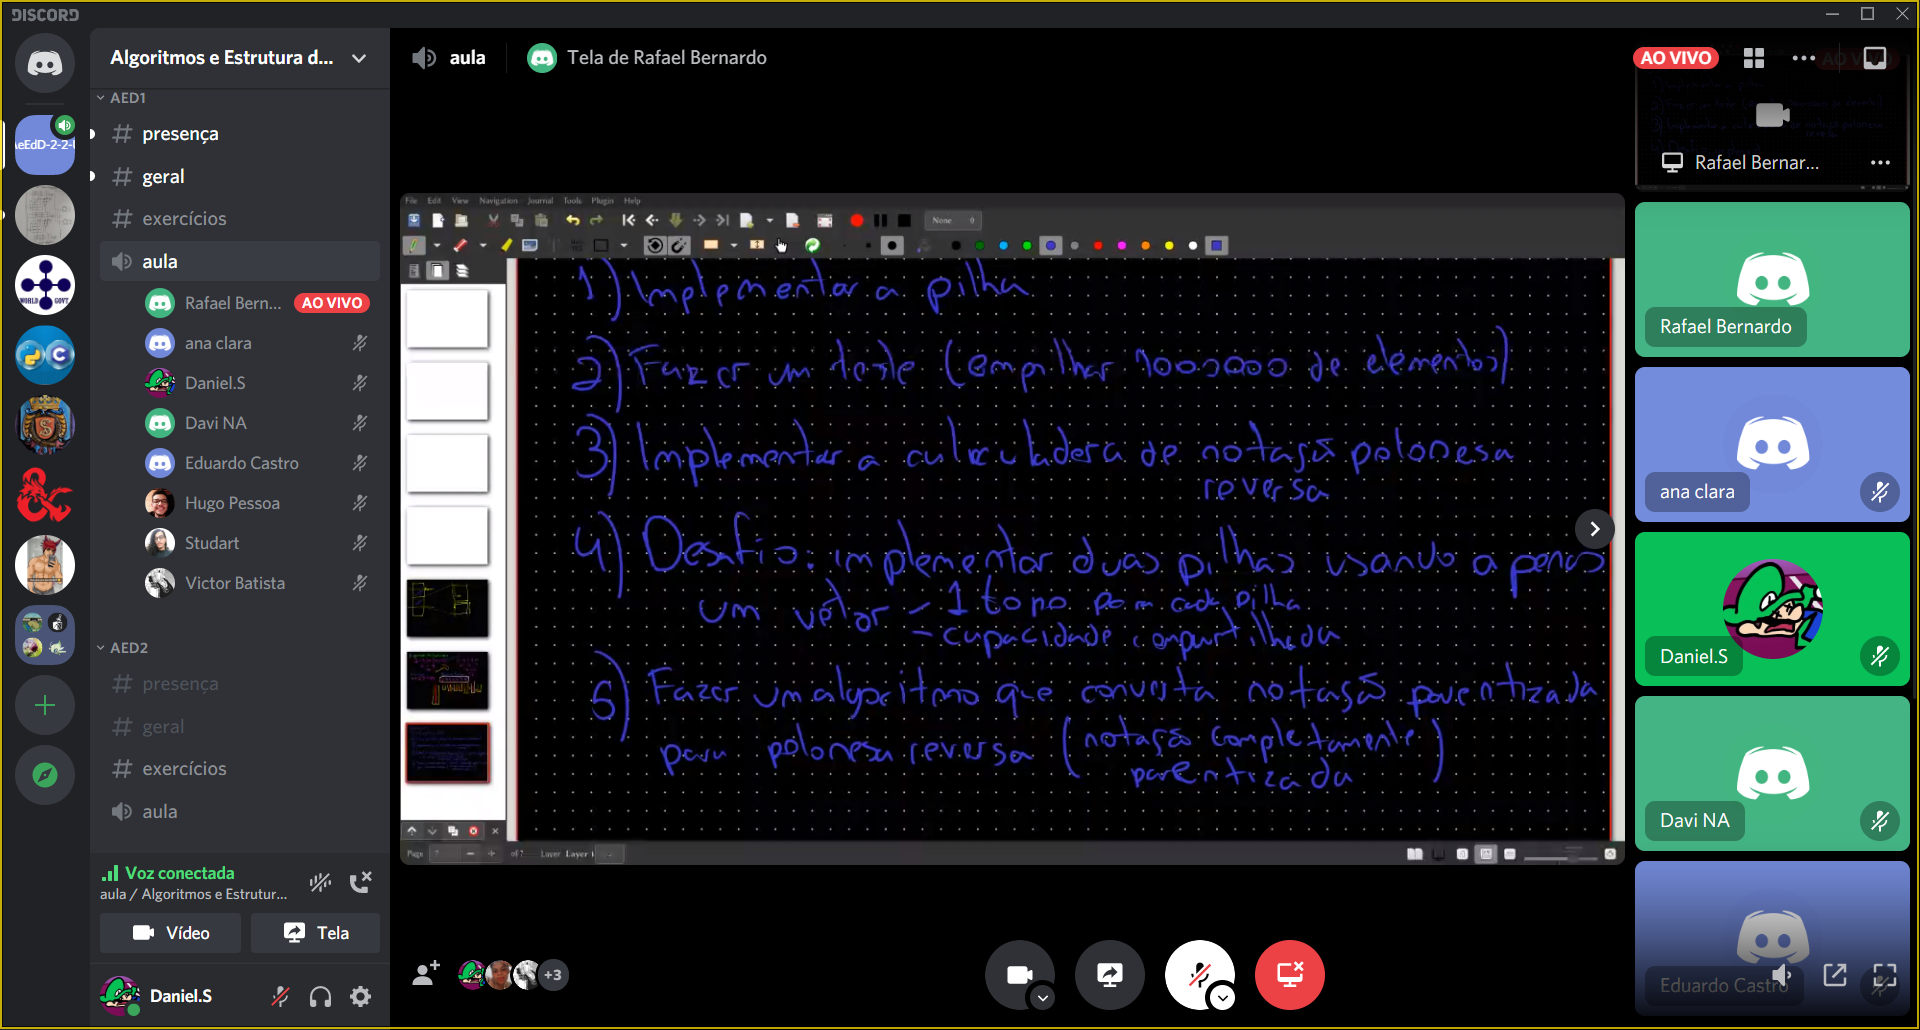 DISCORD
Algoritmos e Estrutura d...
aula
Tela de Rafael Bernardo
AO VIVO
AED1
presença
geral
exercícios
aula
Rafael Bern... AO VIVO
ana clara
Daniel.S
Davi NA
Eduardo Castro
Hugo Pessoa
Studart
Victor Batista
AED2
presença
geral
exercícios
aula
Voz conectada
aula / Algoritmos e Estrutur...
Vídeo
Tela
Daniel.S
eEdD-2-2-
WORLD GOVT.
File Edit View Navigation Journal Tools Plugin Help
None 0
1) Implementar a pilha
2) Fazer um teste (empilhar 1000000 de elementos)
3) Implementar a calculadera de notação polonesa
reversa
4) Desafio: implementar duas pilhas usando apenas
um vetor - 1 topo para cada pilha
- capacidade compartilhada
5) Fazer um algoritmo que converta notação parentizada
para polonesa reversa (notação completamente
parentizada)
Page 7 of 7 Layer Layer 1
+3
Rafael Bernar...
Rafael Bernardo
ana clara
Daniel.S
Davi NA
Eduardo Castro